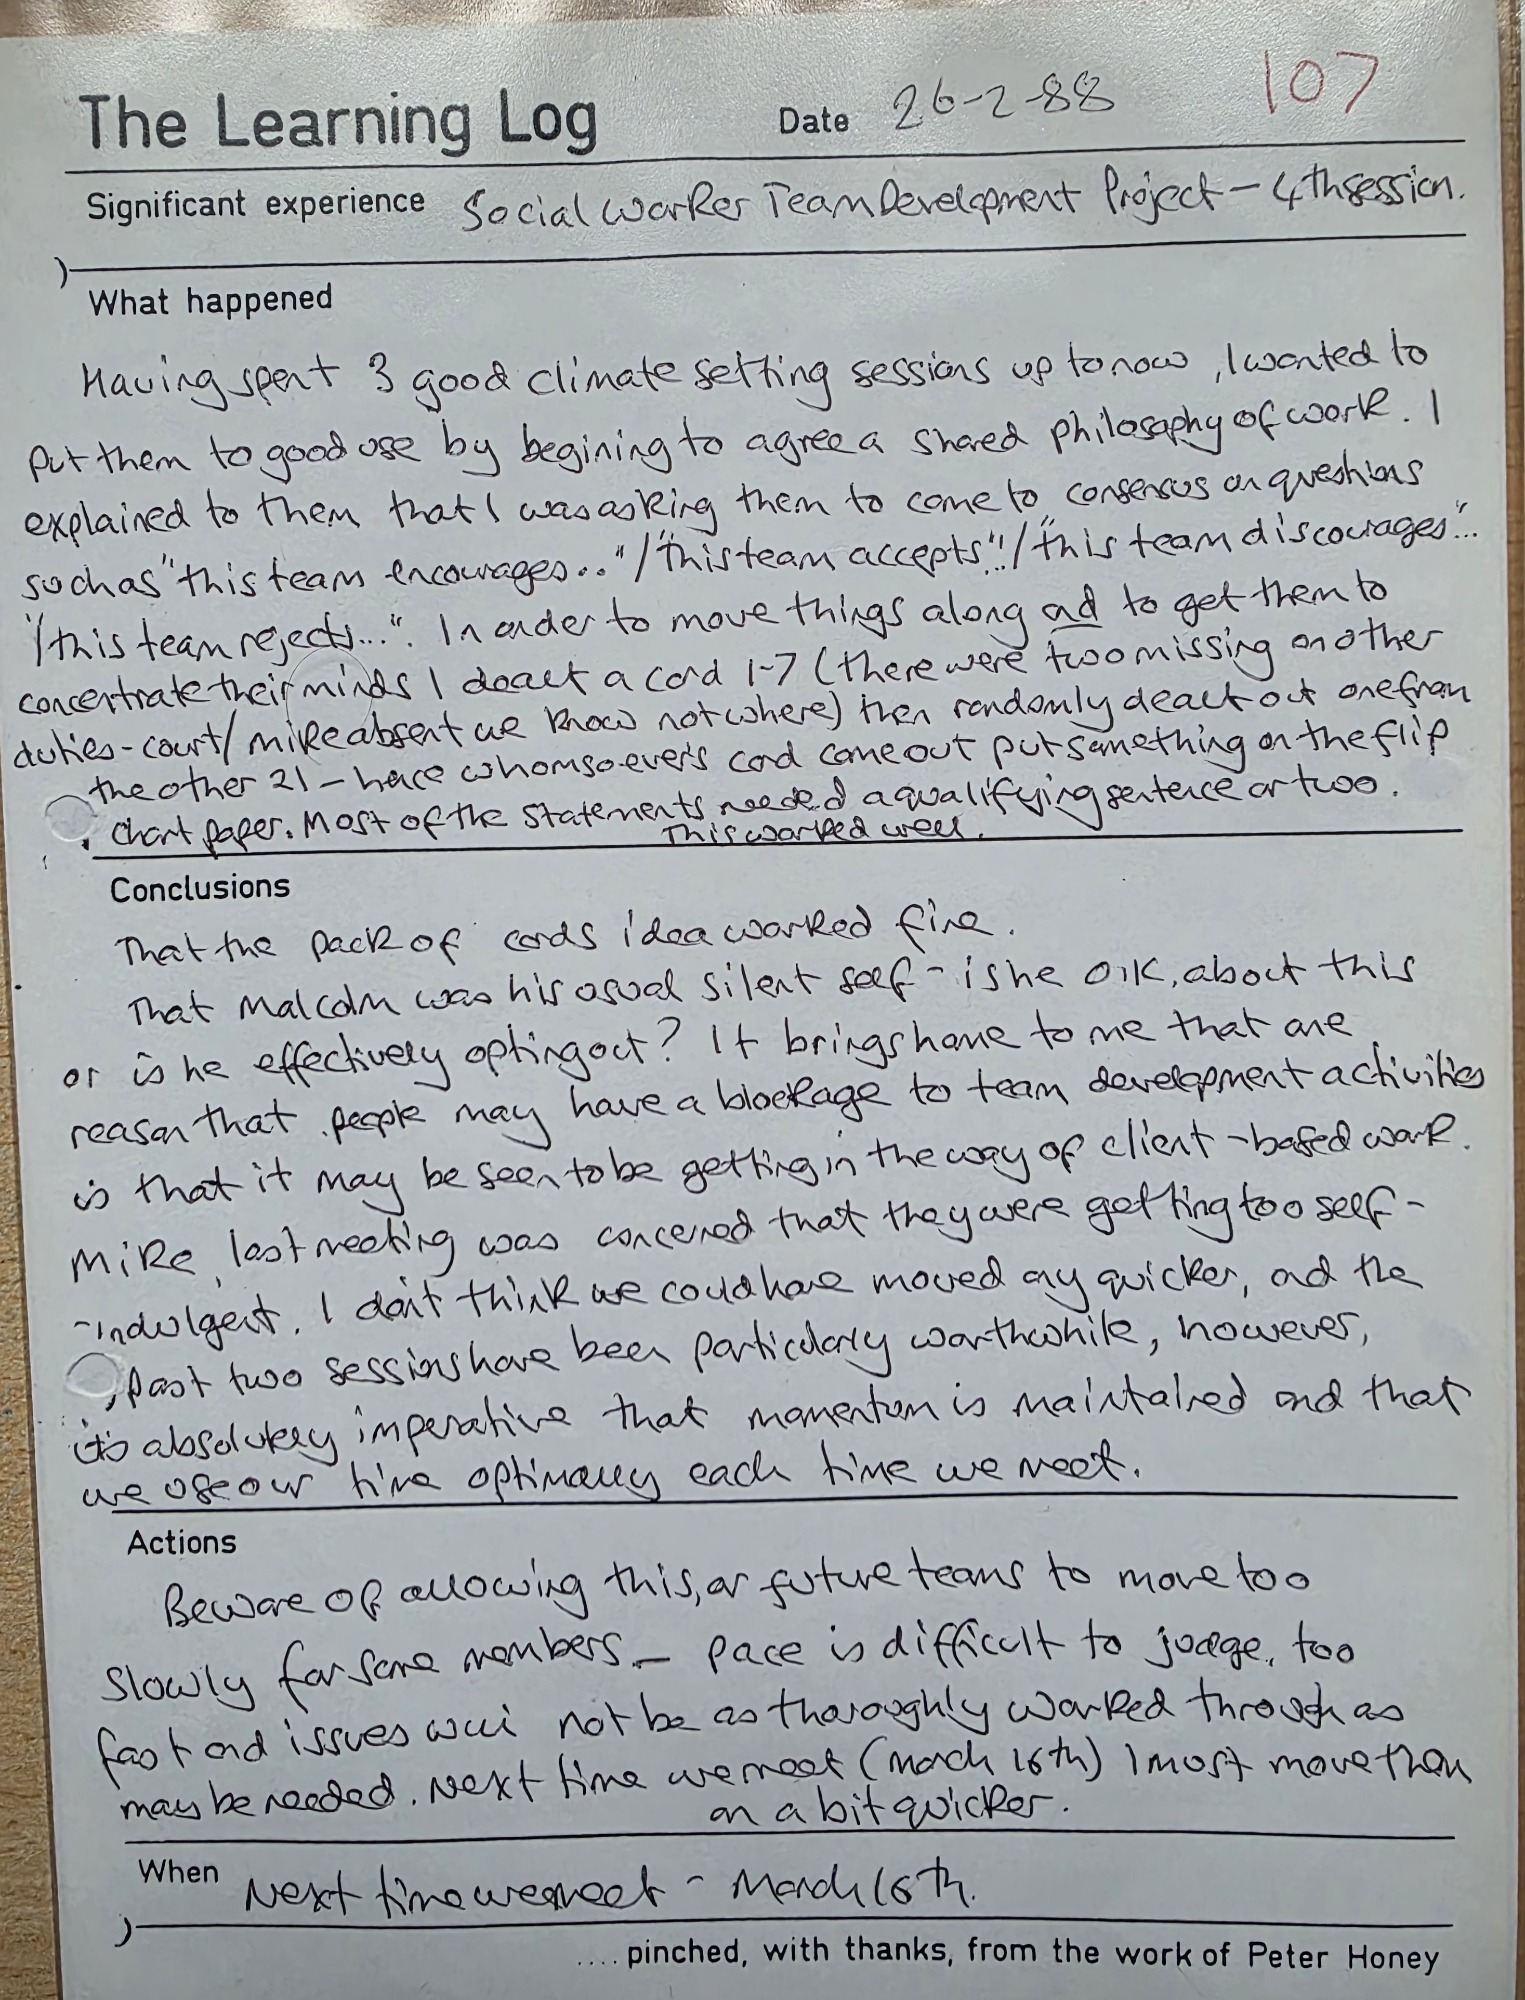 The Learning Log Date 26-2-88 107
Significant experience Social Worker Team Development Project - 4th session.
What happened
Having spent 3 good climate setting sessions up to now, I wanted to
put them to good use by begining to agree a shared philosophy of work. I
explained to them that I was asking them to come to consensus on questions
such as "this team encourages..."/"this team accepts"../"this team discourages"...
"/this team rejects...". In order to move things along and to get them to
concentrate their minds I dealt a card 1-7 (there were two missing on other
duties - court/mike absent we know not where) then randomly dealt out one from
the other 21 - hence whomsoever's card came out put something on the flip
chart paper. Most of the statements needed a qualifying sentence or two.
This worked well.
Conclusions
That the pack of cards idea worked fine.
That Malcolm was his usual silent self - is he O.K. about this
or is he effectively opting out? It brings home to me that one
reason that people may have a blockage to team development activities
is that it may be seen to be getting in the way of client-based work.
Mike, last meeting was concerned that they were getting too self-
-indulgent. I don't think we could have moved any quicker, and the
past two sessions have been particularly worthwhile, however,
it's absolutely imperative that momentum is maintained and that
we use our time optimally each time we meet.
Actions
Beware of allowing this, or future teams to move too
slowly for some members - pace is difficult to judge, too
fast and issues will not be as thoroughly worked through as
may be needed. Next time we meet (March 16th) I must move them
on a bit quicker.
When Next time we meet - March 16th.
.... pinched, with thanks, from the work of Peter Honey